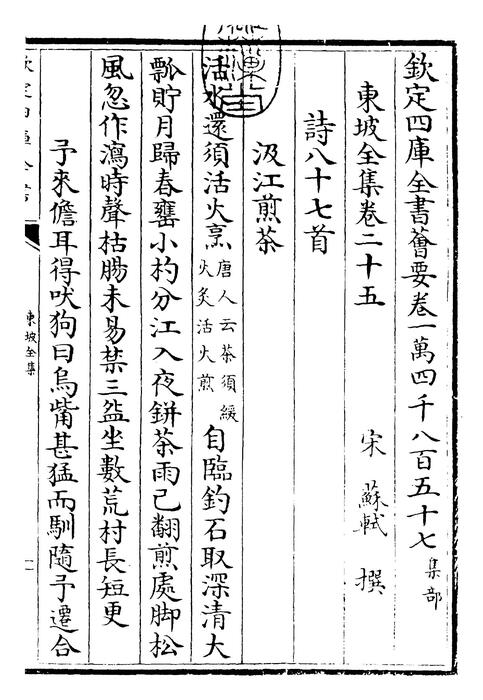 欽定四庫全書薈要卷一萬四千八百五十七 集部
東坡全集卷二十五
宋 蘇軾 撰
詩八十七首
汲江煎茶
活水還須活火烹 唐人云茶須緩火炙活火煎 自臨釣石取深清大
瓢貯月歸春罋小杓分江入夜鉼茶雨已翻煎處脚松
風忽作瀉時聲枯腸未易禁三盌坐數荒村長短更
予來儋耳得吠狗曰烏觜甚猛而馴隨予遷合
東坡全集